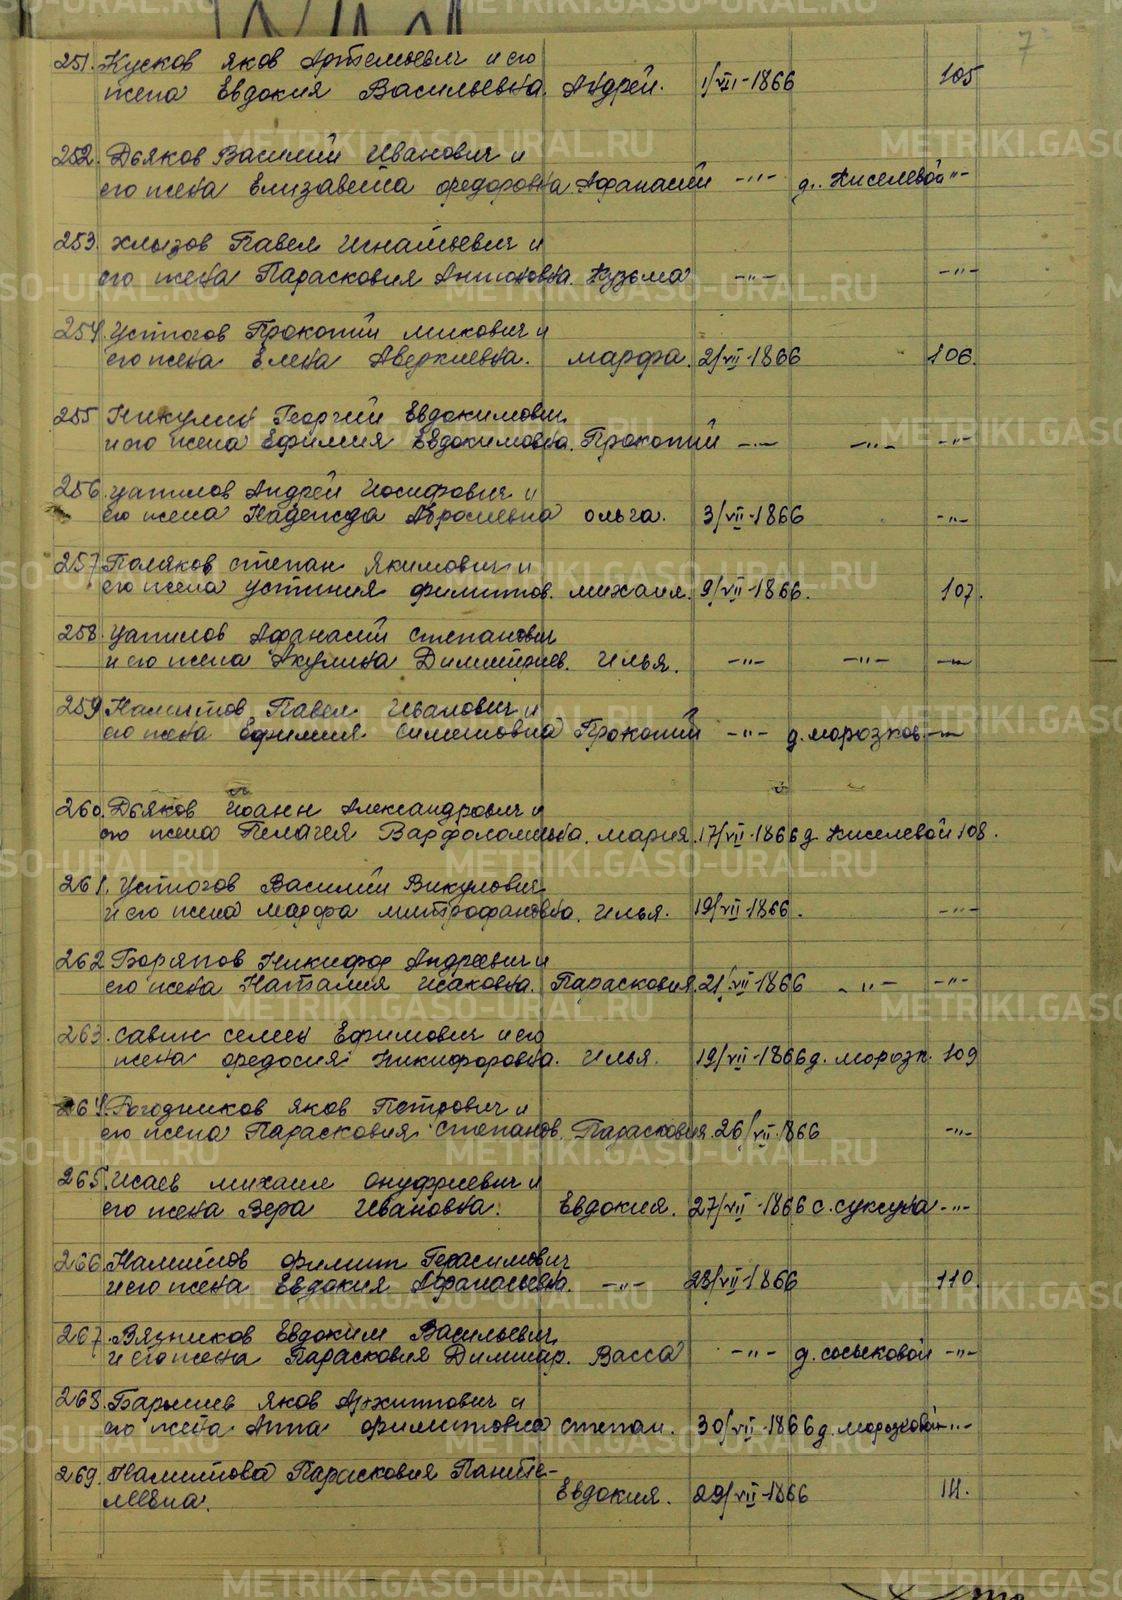 7
251. Кусков Яков Артемьевич и его
жена Евдокия Васильевна. Андрей. 1/VII-1866 105
252. Дьяков Василий Иванович и
его жена Елизавета Федоровна Афанасий -"- д. Киселевой -"-
253. Хлызов Павел Игнатьевич и
его жена Парасковия Антоновна. Кузьма -"- -"-
254. Устюгов Прокопий Микович и
его жена Елена Аверкиевна. Марфа. 2/VII-1866 106.
255 Никулин Георгий Евдокимович
и его жена Ефимия Евдокимовна. Прокопий -"- -"- -"-
256. Андрей Иосифович и
его жена Надежда Абросиевна Ольга. 3/VII-1866 -"-
257. Поляков Степан Якимович и
его жена Устиния Филиппов. Михаил. 9/VII-1866. 107.
258. Афанасий Степанович
и его жена Акулина Димитриев. Илья. -"- -"- -"-
259 Павел Иванович и
его жена Ефимия Симеоновна Прокопий -"- д. Морозков. -"-
260. Дьяков Иоанн Александрович и
его жена Пелагея Варфоломеевна. Мария. 17/VII-1866 д. Киселевой 108.
261. Устюгов Василий Викулович
и его жена Марфа Митрофановна. Илья. 19/VII-1866. -"-
262 Никифор Андреевич и
его жена Наталия Исаковна. Парасковия. 21/VII-1866 -"- -"-
263. Савин Семен Ефимович и его
жена Федосия Никифоровна. Илья. 19/VII-1866 д. Морозк. 109
264. Рогозников Яков Петрович и
его жена Парасковия Степанов. Парасковия. 26/VII-1866 -"-
265. Исаев Михаил Онуфриевич и
его жена Вера Ивановна. Евдокия. 27/VII-1866 с. Суксуна -"-
266. Филипп Герасимович
и его жена Евдокия Афанасьевна. -"- 28/VII-1866 110.
267. Вязников Евдоким Васильевич
и его жена Парасковия Димитр. Васса -"- д. Сосыковой -"-
268. Барышев Яков Архипович и
его жена Анна Филипповна Степан. 30/VII-1866 д. Морозковой -"-
269. Парасковия Панте-
леевна. Евдокия. 29/VII-1866 111.
METRIKI.GASO-URAL.RU